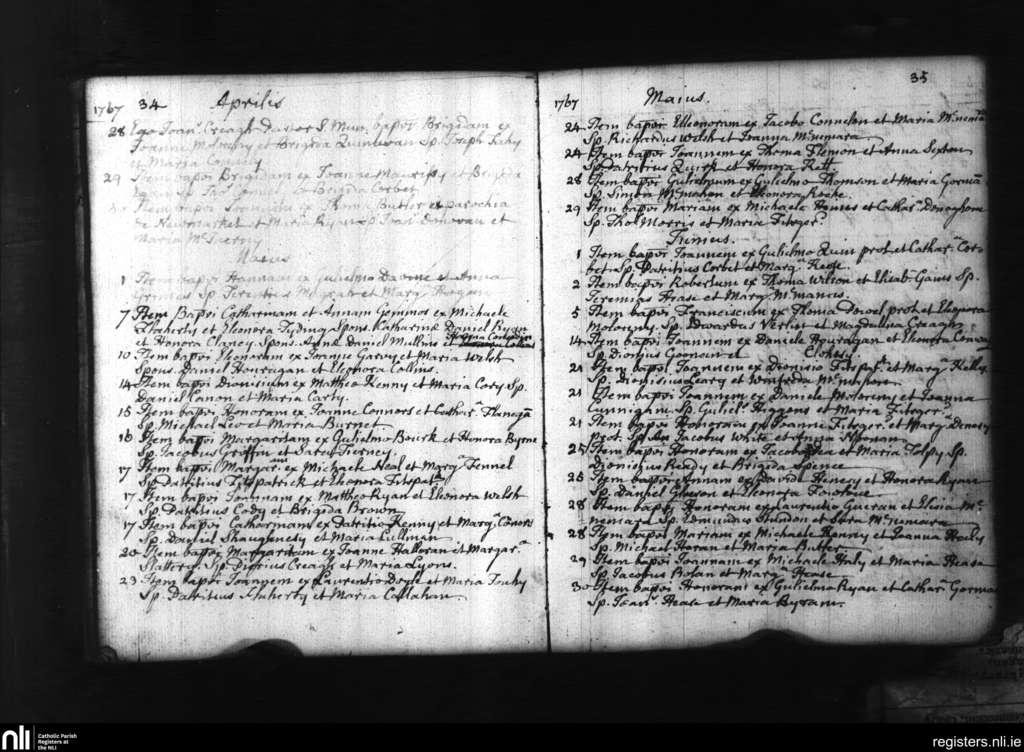 1767 34 Aprilis
28 Ego Joan. Creagh Pastor S. Mun. bapoi Brigidam ex
Joanne et Brigida Quinlivan Sp. Joseph Fahy
et Maria Conway
29 Item bapoi Brigidam ex Joanne et Brigida
Sp. et Brigida Corbet
Item bapoi Butler ex Parochia
de Newmarket et Maria Ryan Sp. Donovan et
Maria McInerny
Maius
1 Item bapoi Joannam ex Gulielmo Devine et Anna
Grimes Sp. et Marg. Hogan
7 Item Bapoi Catharinam et Annam Gemmos ex Michaele
Flaherty et Eleonora Spons. Catharina Daniel Ryan
et Honora Clancy Spons. Anna Daniel Mullins et
10 Item bapoi Eleonoram ex Joanne Garvy et Maria Welsh
Spons. Daniel Houragan et Eleonora Collins.
14 Item bapoi Dionisium ex Mattheo Kenny et Maria Cory Sp.
Daniel Canon et Maria Carty.
15 Item bapoi Honoram ex Joanne Connors et Cathar. Flanegā
Sp. Michael Leo et Maria Burnet
16 Item bapoi Margaritam ex Gulielmo Bourk et Honora Byrne
Sp. Jacobus Griffin et Sara Tierney.
17 Item bapoi Margar. ex Michaele Neal et Marg. Fennel
Sp. Patritius Fitzpatrick et Eleonora Fitzpat.
17 Item bapoi Joannam ex Mattheo Ryan et Eleonora Welsh
Sp. Patritius Cody et Brigida Brown
17 Item bapoi Catharinam ex Patritio Kenny et Marg. Conors
Sp. Daniel Shaughnesy et Maria Cullinan
20 Item bapoi Margaritam ex Joanne Halloran et Margar.
Slattery. Sp. Pierius Creagh et Maria Lyons.
23 Item bapoi Joannem ex Laurentio Doyle et Maria Touhy
Sp. Patritius Fluherty et Maria Callahan.
35
1767 Maius.
24 Item bapoi Elleonoram ex Jacobo Connelon et Maria
Sp. Richardus Welsh et Joanna McNemara
24 Item bapoi Joannem ex Thoma Flemon et Anna Sexton
Sp. Patritius Quirk et Honora
28 Item bapoi Gulielmum ex Gulielmo Thomson et Maria Gormā
Sp. Simon McMahon et Eleonora Roche
29 Item bapoi Mariam ex Michaele Hynes et Cathar. Donoghow
Sp. Tho. Morris et Maria Fitzger.
Junius.
1 Item bapoi Joannem ex Gulielmo Quin prot. et Cathar. Cor-
bet Sp. Patritius Corbet et Marg. Hease.
2 Item bapoi Robertum ex Thoma Wilson et Elisab. Sp.
Jeremias Hease et Marg. McManus
5 Item bapoi Franciscum ex Thoma Dowel prot. et Eleonora
Moloncny. Sp. Edwardus Verlin et Magdalena Creagh
14 Item bapoi Joannem ex Daniele Houragan et Eleonora Conway
Sp. Dionisius Goonan et Clohesy
21 Item bapoi Joannem ex Dionisio Fitzpat. et Marg. Kelly
Sp. Dionisius Leary et Winifrida McMahon
21 Item bapoi Joannem ex Daniele Moloncny et Joanna
Cunnigam Sp. Guliel. Higgens et Maria Fitzger.
21 Item bapoi Honoram ex Joanne Fitzger. et Marg.
prot. Sp. Jacobus White et Anna Noonan
25 Item bapoi Honoram ex Jacobo Dea et Maria Tolpy Sp.
Dionisius Reidy et Brigida Spence
25 Item bapoi Annam ex Davide Henesy et Honora Ryan
Sp. Daniel Gleeson et Eleonora Donohue
28 Item bapoi Honoram ex Laurentio Gueran et Elisia Mc
nemara Sp. Edmundus Shindon et Sara McNemara
28 Item bapoi Mariam ex Michaele Kenny et Joanna Healy
Sp. Michael Horan et Maria Butler
29 Item bapoi Joannam ex Michaele Haly et Maria Hease
Sp. Jacobus Bolan et Marg. Hease
30 Item bapoi Honoram ex Gulielmo Ryan et Cathar. Gorman
Sp. Joan. Hease et Maria Byram.
nli Catholic Parish
Registers at
the NLI
registers.nli.ie